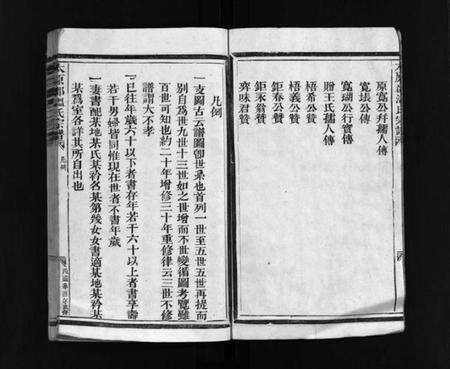 原寬公幷孺人傳
寬㻏公傳
寬瑚公行實傳
贈王氏孺人傳
梧希公贊
梧義公贊
鉅春公贊
鉅家翁贊
齊味君贊
凡例
一支圖古云譜圖卽世系也首列一世至五世五世再提而
別自爲世九世十三世如之世增而不世變循圖考覽雖
百世可知也約二十年增修三十年重修律云三世不修
譜謂大不孝
一已往年歲六十以下者書存年若干六十以上者書享壽
若干男婦皆同惟現在世者不書年歲
一妻書配某地某氏某矜名某第幾女女書適某地某矜某
某爲室各詳其所自出也
太原郡溫氏宗譜
凡例